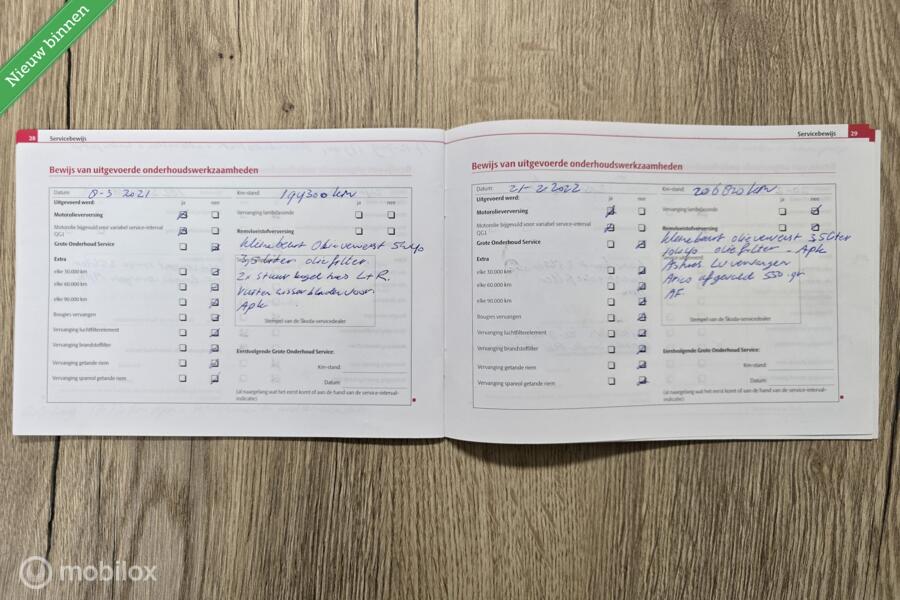 Nieuw binnen
28 Servicebewijs
Bewijs van uitgevoerde onderhoudswerkzaamheden
Datum: 8-3 2021 Km-stand: 194300 km
Uitgevoerd werd: ja nee ja nee
Motorolieverversing Vervanging lambdasonde
Motorolie bijgevuld voor variabel service-interval QG1 Remvloeistofverversing
Grote Onderhoud Service
kleine beurt Olie ververst
3,5 liter oliefilter
Extra
2x stuurkogel L+R.
elke 30.000 km
elke 60.000 km
voor
elke 90.000 km
Apk
Bougies vervangen
Stempel van de Skoda-servicedealer
Vervanging luchtfilterelement
Vervanging brandstoffilter
Eerstvolgende Grote Onderhoud Service:
Vervanging getande riem
Km-stand:
Vervanging spanrol getande riem
Datum:
(al naargelang wat het eerst komt of aan de hand van de service-interval-indicatie)
Servicebewijs 29
Bewijs van uitgevoerde onderhoudswerkzaamheden
Datum: 21-2 2022 Km-stand: 206820 km
Uitgevoerd werd: ja nee ja nee
Motorolieverversing Vervanging lambdasonde
Motorolie bijgevuld voor variabel service-interval QG1 Remvloeistofverversing
Grote Onderhoud Service
kleine beurt olie ververst 3,5 liter
oliefilter - Apk
Extra
vervangen
elke 30.000 km
Airco afgevuld 550 gr
elke 60.000 km
AF.
elke 90.000 km
Bougies vervangen
Stempel van de Skoda-servicedealer
Vervanging luchtfilterelement
Vervanging brandstoffilter
Eerstvolgende Grote Onderhoud Service:
Vervanging getande riem
Km-stand:
Vervanging spanrol getande riem
Datum:
(al naargelang wat het eerst komt of aan de hand van de service-interval-indicatie)
mobilox